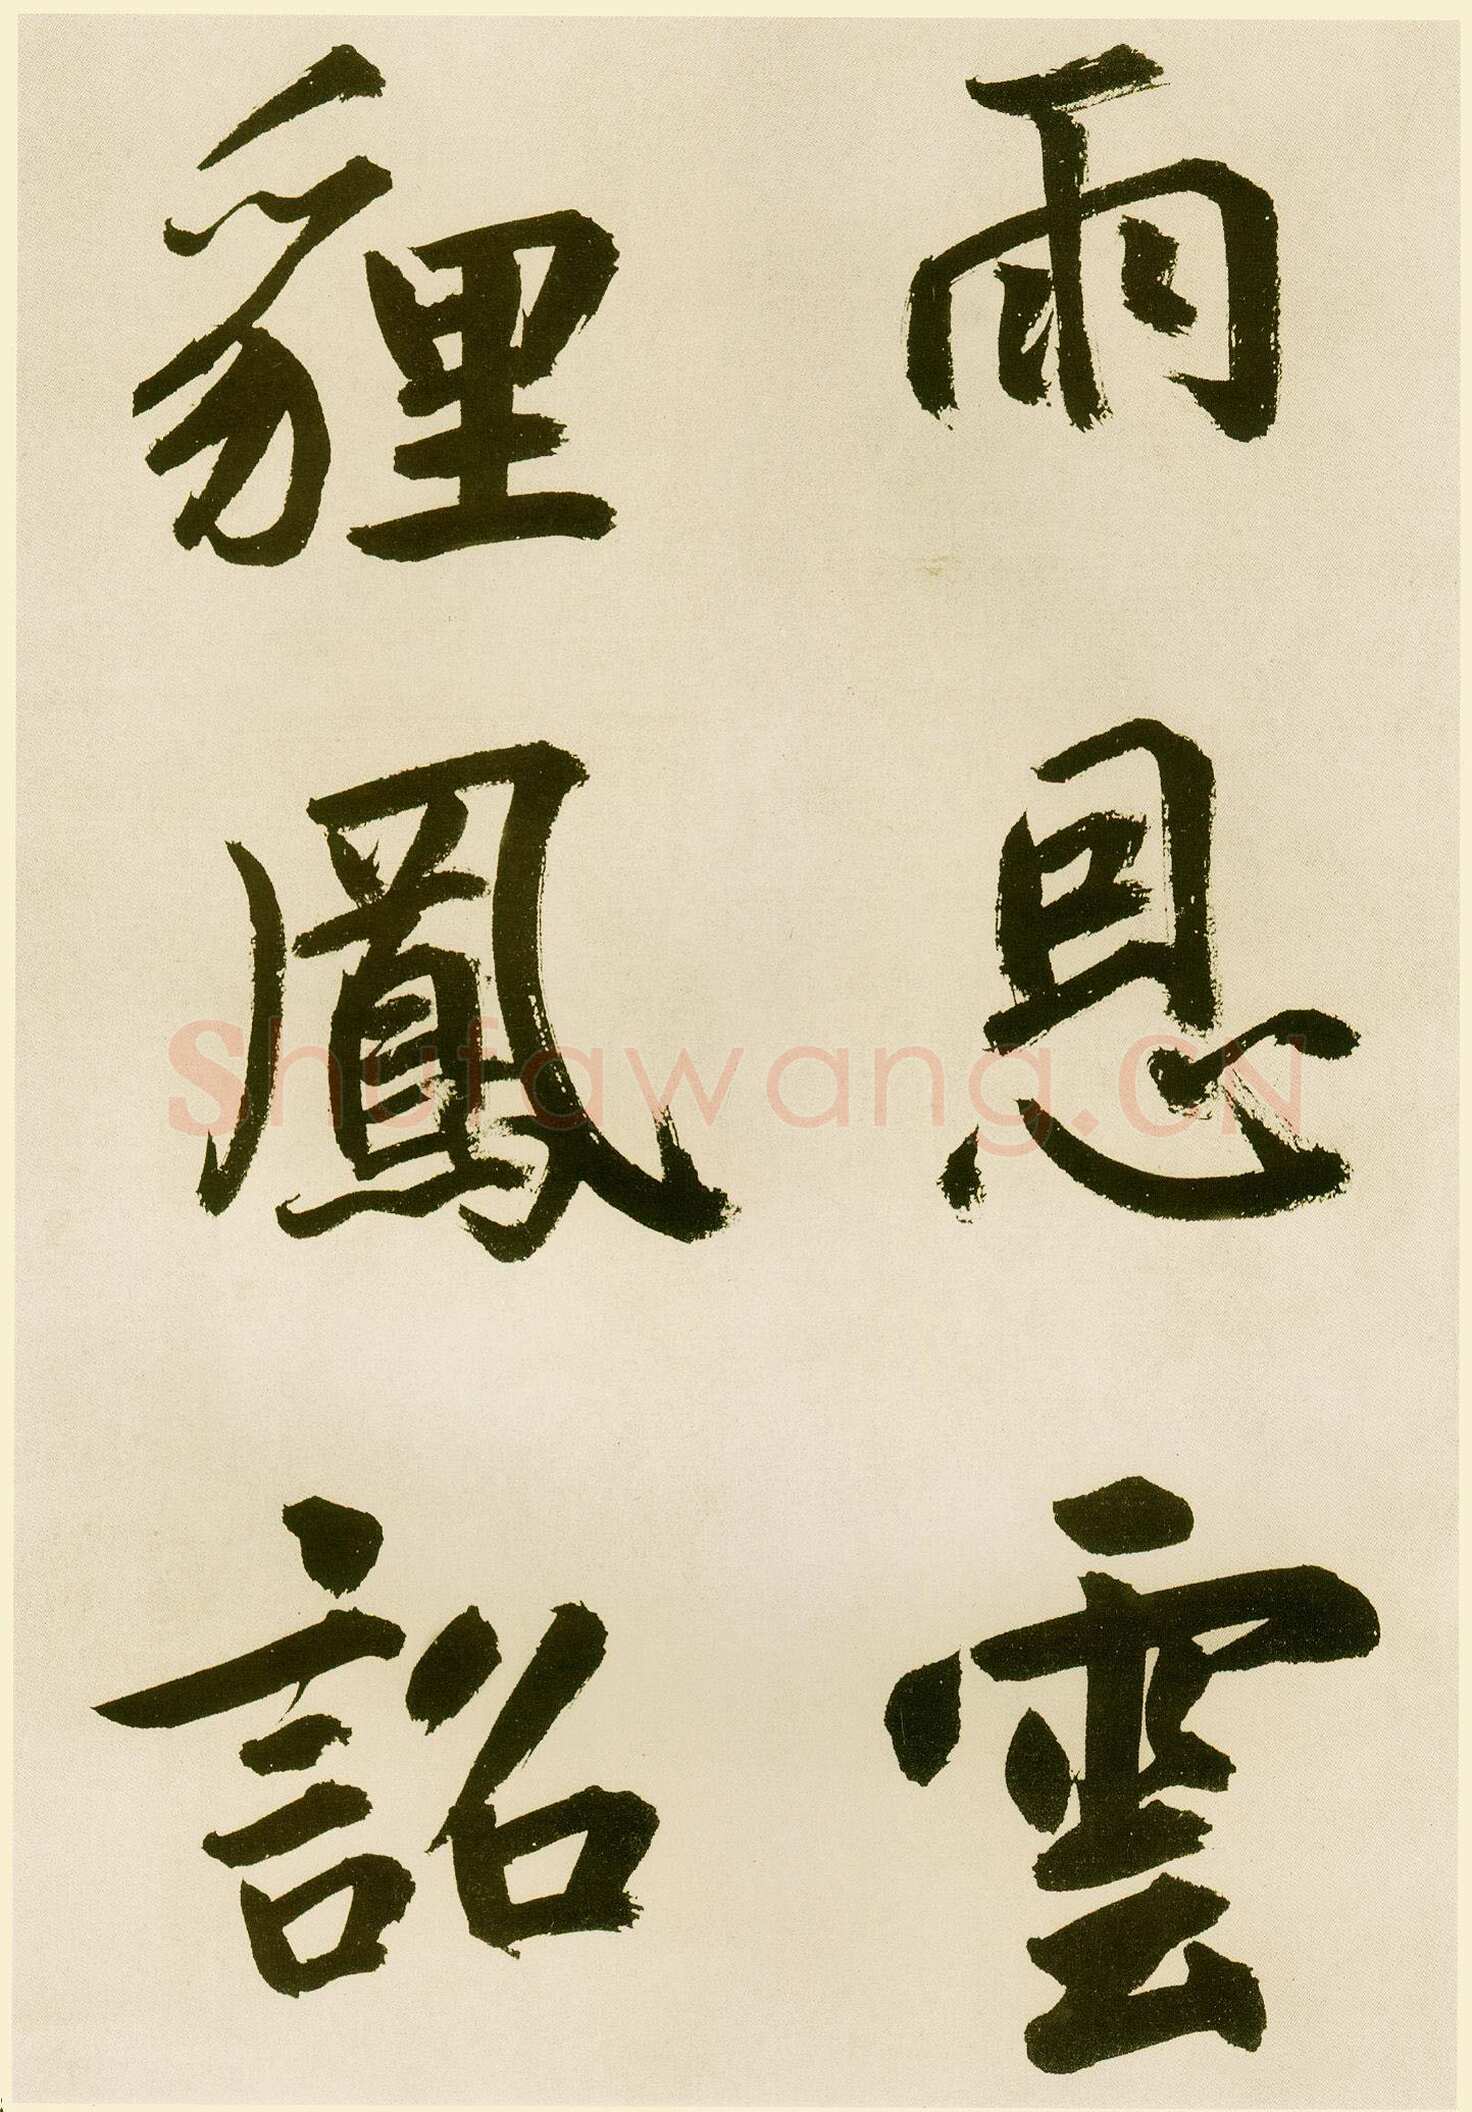 雨恩雲
貍鳳詔
Shufawang.CN